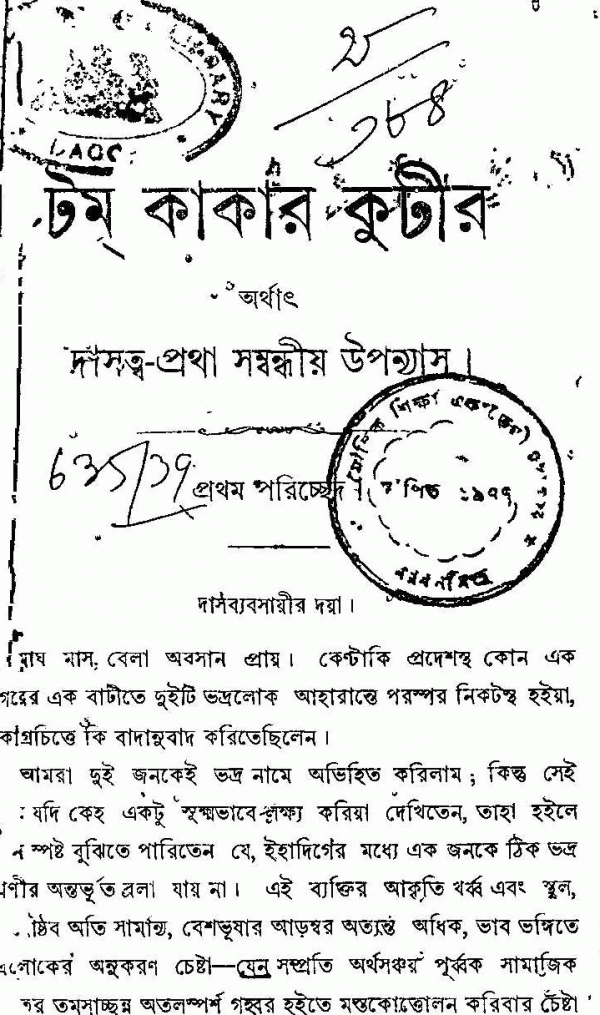 LIBRARY
টম্ কাকার কুটীর
অর্থাৎ
দাসত্ব-প্রথা সম্বন্ধীয় উপন্যাস।
635/39
প্রথম পরিচ্ছেদ।
স্থাপিত ১৯৭৭
দাসব্যবসায়ীর দয়া।
মাঘ মাস, বেলা অবসান প্রায়। কেণ্টাকি প্রদেশস্থ কোন এক
এক বাটীতে দুইটি ভদ্রলোক আহারান্তে পরস্পর নিকটস্থ হইয়া,
কাগ্রচিত্তে কি বাদানুবাদ করিতেছিলেন।
আমরা দুই জনকেই ভদ্র নামে অভিহিত করিলাম; কিন্তু সেই
যদি কেহ একটু সূক্ষ্মভাবে লক্ষ্য করিয়া দেখিতেন, তাহা হইলে
স্পষ্ট বুঝিতে পারিতেন যে, ইহাদিগের মধ্যে এক জনকে ঠিক ভদ্র
অন্তর্ভূত বলা যায় না। এই ব্যক্তির আকৃতি খর্ব্ব এবং স্থূল,
অতি সামান্য, বেশভূষার আড়ম্বর অত্যন্ত অধিক, ভাব ভঙ্গিতে
লোকের অনুকরণ চেষ্টা—যেন সম্প্রতি অর্থসঞ্চয় পূর্ব্বক সামাজিক
তমসাচ্ছন্ন অতলস্পর্শ গহ্বর হইতে মস্তকোত্তোলন করিবার চেষ্টা